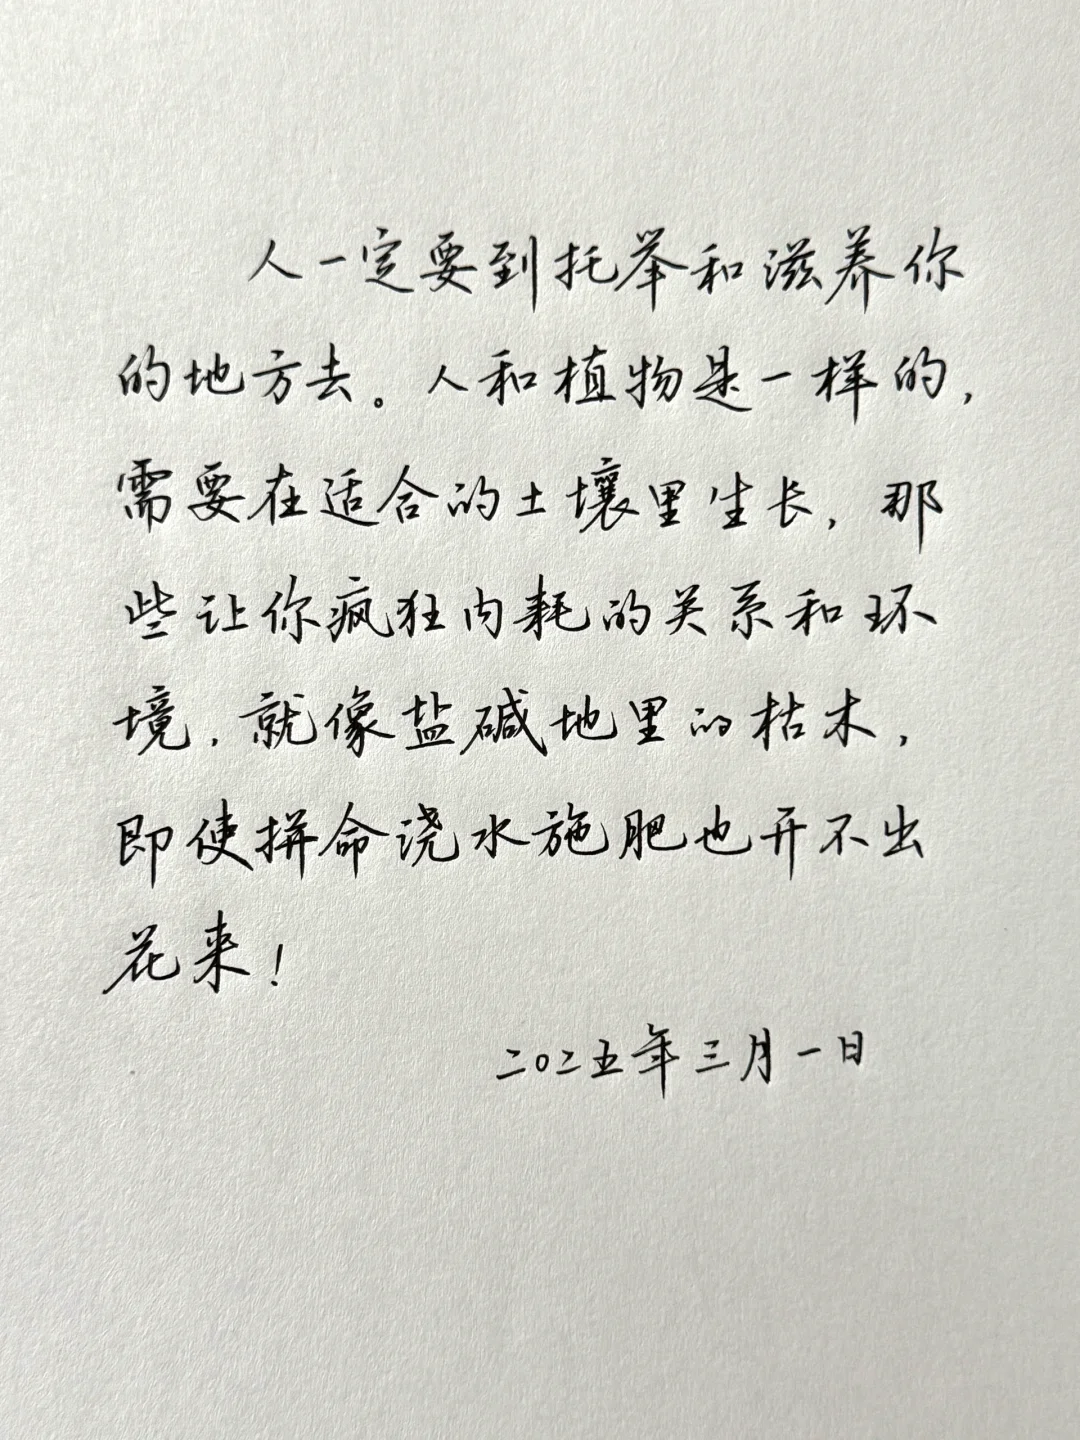 人一定要到托举和滋养你
的地方去。人和植物是一样的，
需要在适合的土壤里生长，那
些让你疯狂内耗的关系和环
境，就像盐碱地里的枯木，
即使拼命浇水施肥也开不出
花来！
二〇二五年三月一日